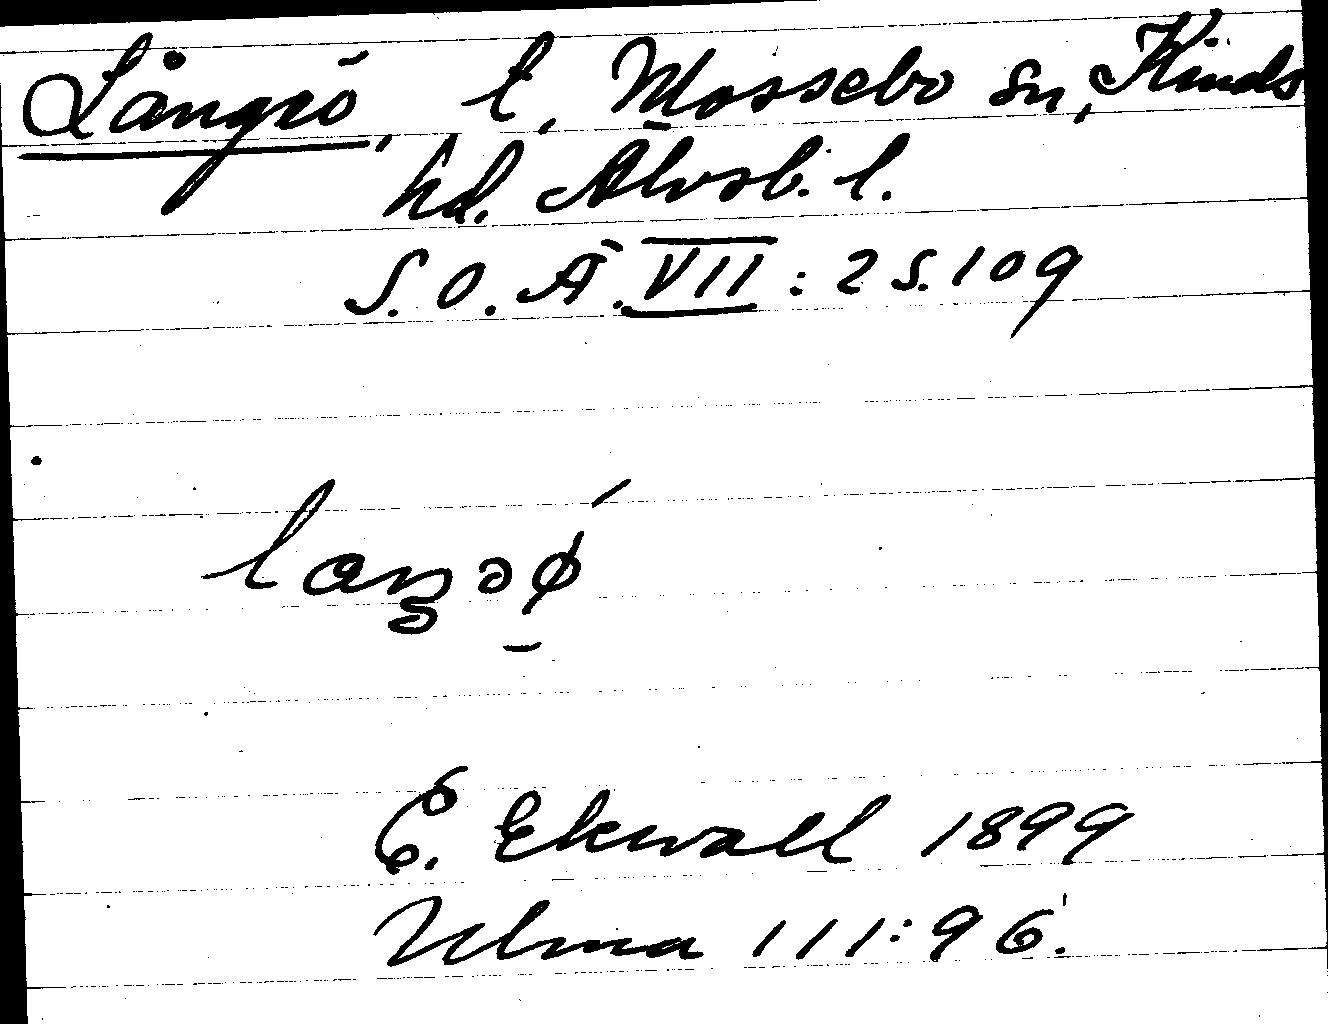 Långrö, t, Mossebo sn, Kinds
hd. Älvsb. l.
S. O. Ä. VII : 2 s. 109
E. Ekwall 1899
Ulma 111:96.